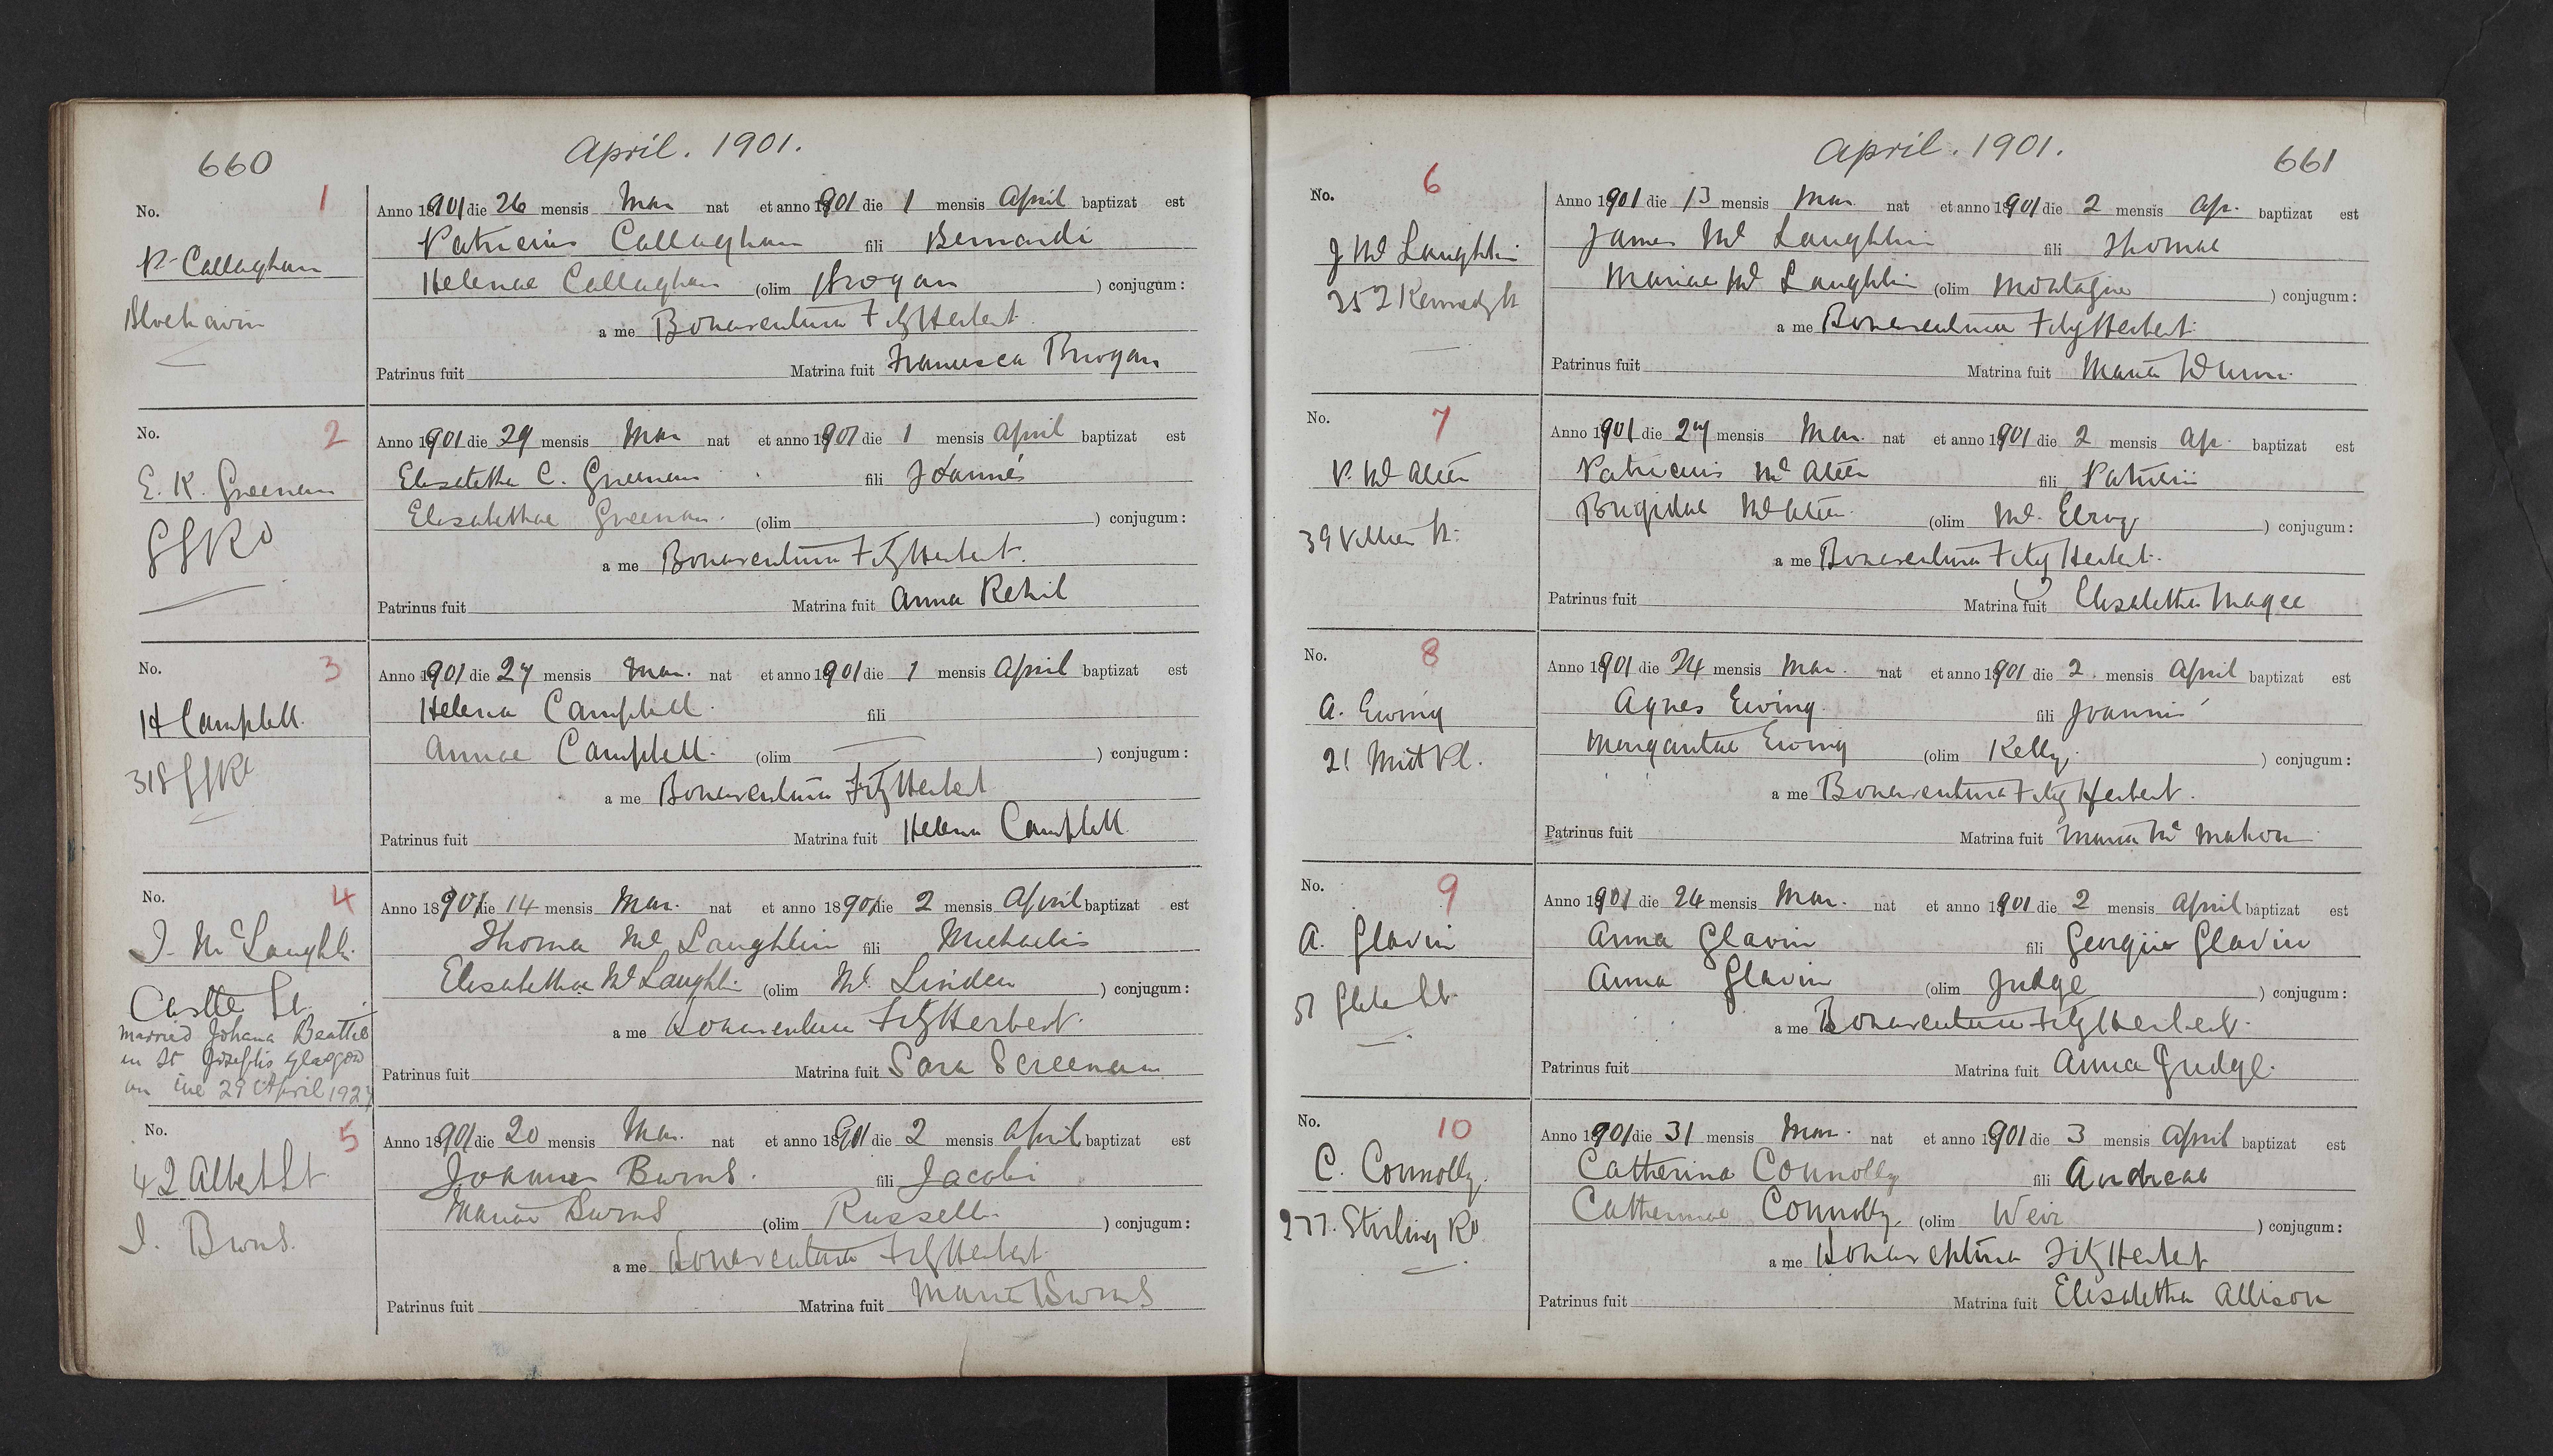 660
April. 1901.
No. 1
P. Callaghan
Anno 1901 die 26 mensis Mar nat et anno 1901 die 1 mensis April baptizat est
Patricius Callaghan fili Bernardi
Helenae Callaghan (olim Brogan ) conjugum:
a me Bonaventura FitzHerbert
Patrinus fuit Matrina fuit Francisca Brogan
No. 2
E. K. Greenan
GGRd
Anno 1901 die 29 mensis Mar nat et anno 1901 die 1 mensis April baptizat est
Elisabetha C. Greenan fili Joannis
Elisabethae Greenan. (olim ) conjugum:
a me Bonaventura FitzHerbert.
Patrinus fuit Matrina fuit Anna Rehil
No. 3
H Campbell.
318 GGRd
Anno 1901 die 27 mensis Mar. nat et anno 1901 die 1 mensis April baptizat est
Helena Campbell. fili
Annae Campbell. (olim — ) conjugum:
a me Bonaventura FitzHerbert
Patrinus fuit Matrina fuit Helena Campbell
No. 4
T. McLaughli.
Castle St.
married Johana Beattie
in St Josephs Glasgow
on the 29 April 1927
Anno 1901 die 14 mensis Mar. nat et anno 1901 die 2 mensis April baptizat est
Thoma Mc Laughlin fili Michaelis
Elisabethae McLaughli (olim Mc. Linden ) conjugum:
a me Bonaventura FitzHerbert.
Patrinus fuit Matrina fuit Sara Screenan
No. 5
42 Albert St
J. Burns.
Anno 1901 die 20 mensis Mar. nat et anno 1901 die 2 mensis April baptizat est
Joannes Burns. fili Jacobi
Mariae Burns (olim Russell. ) conjugum:
a me Bonaventura FitzHerbert
Patrinus fuit Matrina fuit Maria Burns
April. 1901.
661
No. 6
J Mc Laughlin
252 Kennedy St
Anno 1901 die 13 mensis Mar. nat et anno 1901 die 2 mensis Ap. baptizat est
James Mc Laughlin fili Thomae
Mariae Mc Laughlin (olim Montague ) conjugum:
a me Bonaventura FitzHerbert.
Patrinus fuit Matrina fuit Maria
No. 7
P. Mc Ateer
39 Villiers St.
Anno 1901 die 27 mensis Mar. nat et anno 1901 die 2 mensis Ap. baptizat est
Patricius Mc Ateer fili Patricii
Brigidae McAteer. (olim Mc. Elroy ) conjugum:
a me Bonaventura FitzHerbert.
Patrinus fuit Matrina fuit Elisabetha Magee
No. 8
A. Ewing
21 Pl.
Anno 1901 die 24 mensis Mar. nat et anno 1901 die 2. mensis April baptizat est
Agnes Ewing fili Joannis
Margaritae Ewing (olim Kelly. ) conjugum:
a me Bonaventura FitzHerbert.
Patrinus fuit Matrina fuit Maria Mc Mahon
No. 9
A. Glavin
51 Glebe St.
Anno 1901 die 24 mensis Mar. nat et anno 1901 die 2 mensis April baptizat est
Anna Glavin fili Georgii Glavin
Anna Glavin (olim Judge ) conjugum:
a me Bonaventura FitzHerbert.
Patrinus fuit Matrina fuit Anna Judge.
No. 10
C. Connolly.
277. Stirling Rd.
Anno 1901 die 31 mensis Mar. nat et anno 1901 die 3 mensis April baptizat est
Catherina Connolly fili Andreae
Catherinae Connolly. (olim Weir ) conjugum:
a me Bonaventura FitzHerbert
Patrinus fuit Matrina fuit Elisabetha Allison